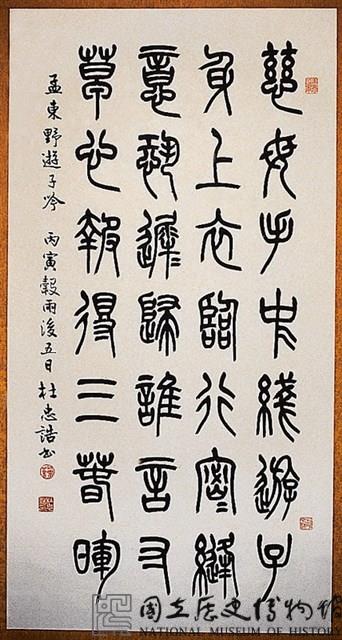 慈母手中綫遊子
身上衣臨行密縫
意恐遲歸誰言寸
草心報得三春暉
孟東野遊子吟 丙寅穀雨後五日杜忠誥書
國立歷史博物館
NATIONAL MUSEUM OF HISTORY